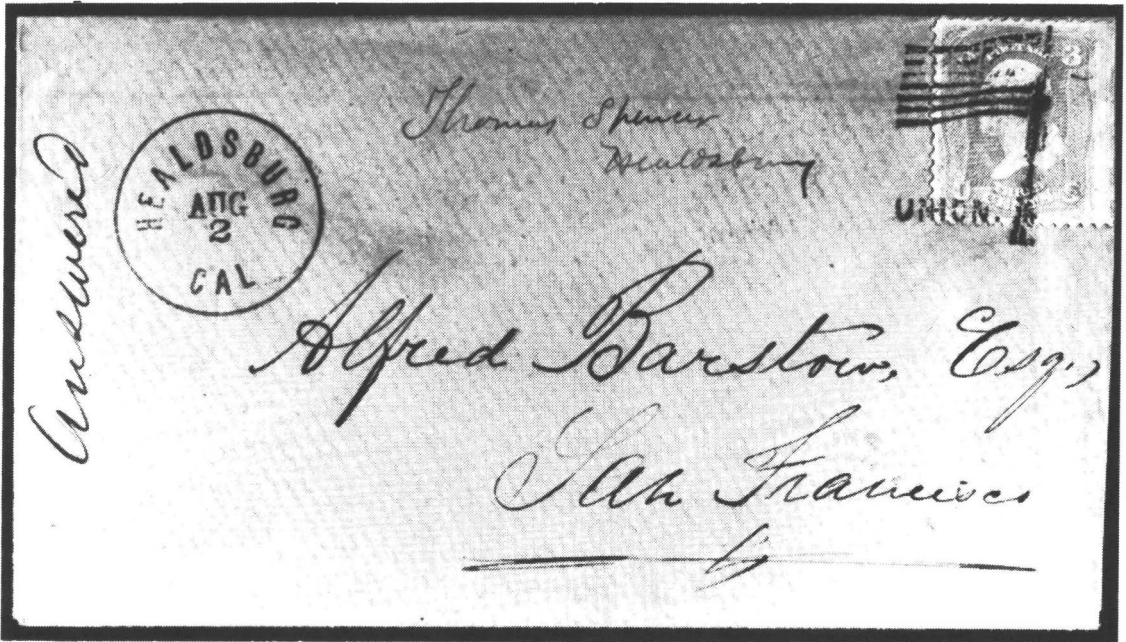 Answered
HEALDSBURG
AUG
2
CAL
Thomas Spencer
Healdsburg
3
UNION.
Alfred Barstow, Esq.,
San Francisco